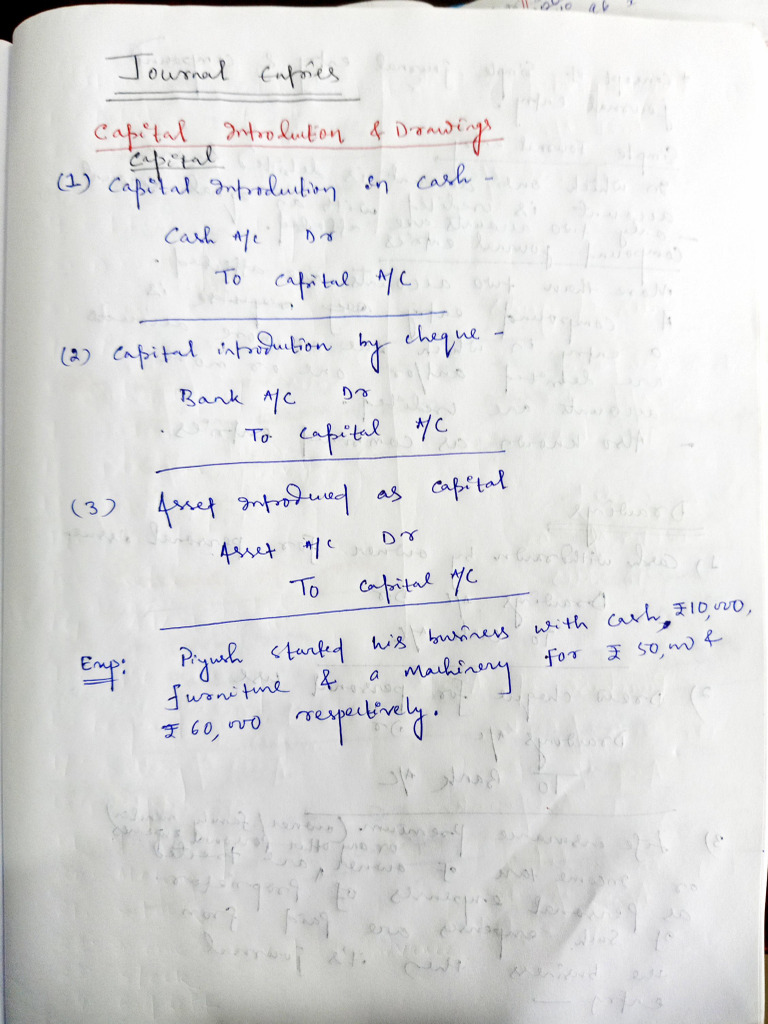 Journal Entries
Capital Introduction & Drawings
Capital
(1) Capital Introduction in cash -
Cash A/c Dr
To Capital A/C
(2) Capital introduction by cheque -
Bank A/C Dr
To Capital A/C
(3) Asset introduced as capital
Asset A/c Dr
To Capital A/C
Exp: Piyush started his business with cash, ₹10,000,
furniture & a Machinery for ₹ 50,000 &
₹ 60,000 respectively.